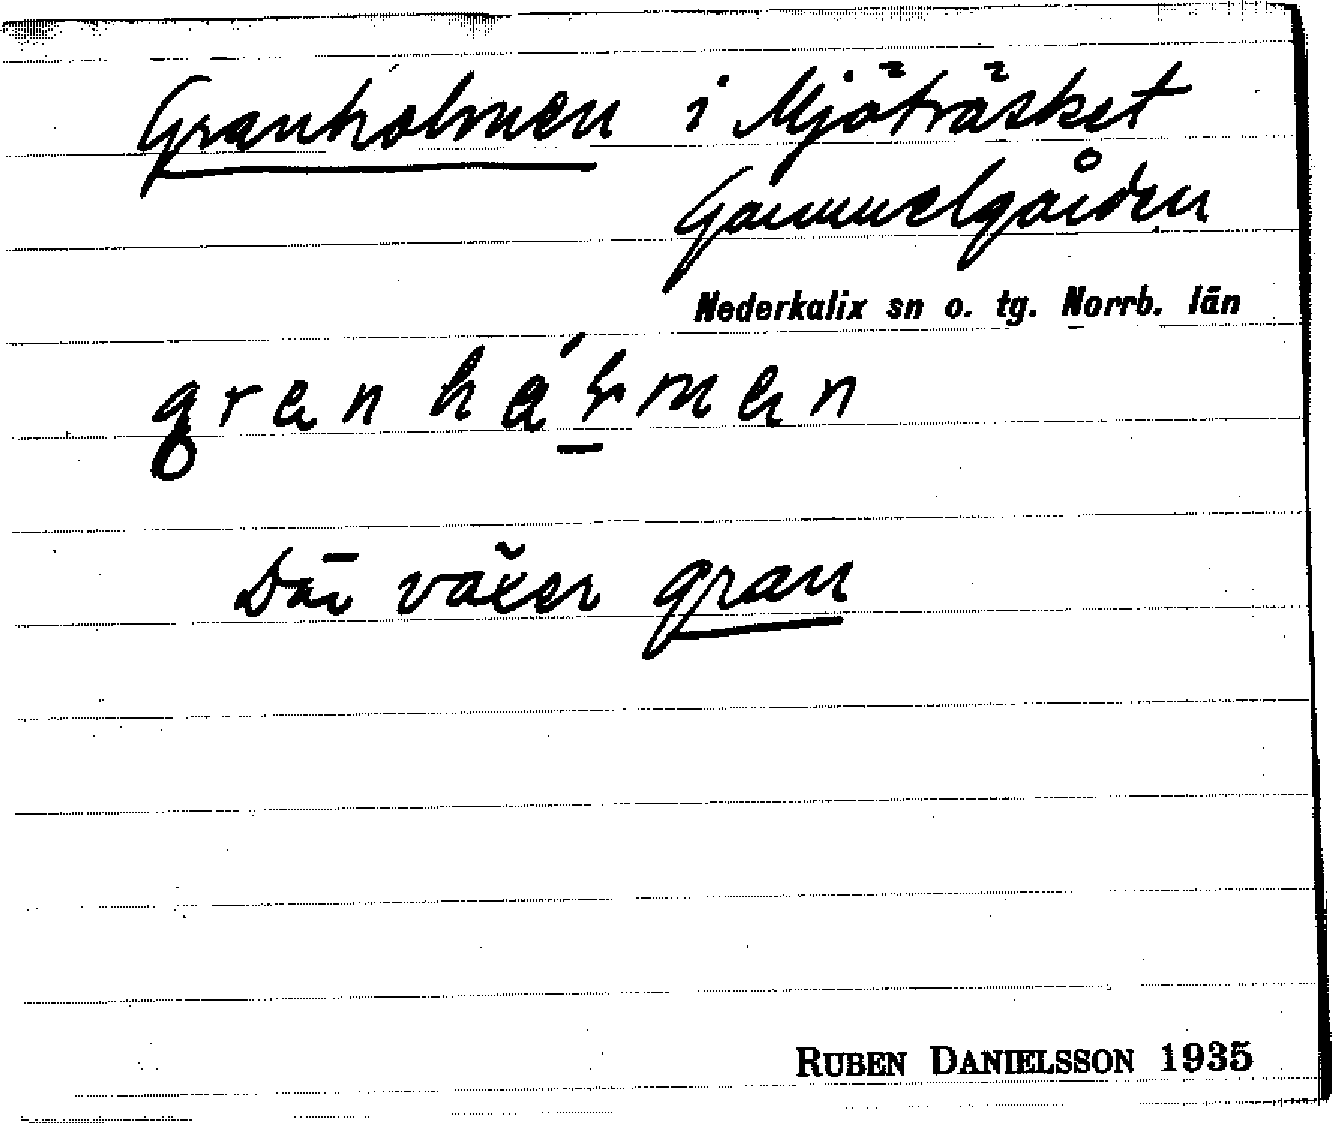 Granholmen i Mjöträsket
Gammelgården
Nederkalix sn o. tg. Norrb. län
Där växer gran
RUBEN DANIELSSON 1935